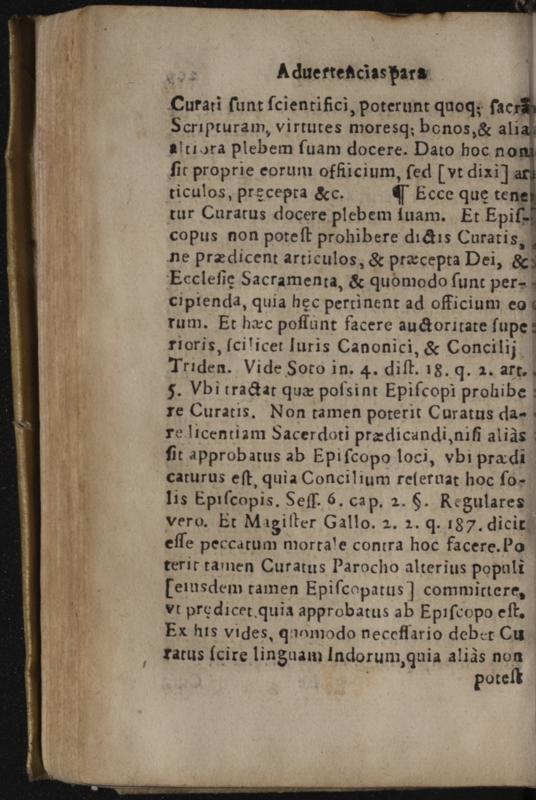 Aduertencias para
Curati sunt scientifici, poterunt quoq; sacrã
Scripturam, virtutes moresq; bonos, & alia
altiora plebem suam docere. Dato hoc non
sit proprie eorum offiicium, sed [vt dixi] ar
ticulos, pręcepta &c. ¶ Ecce quę tene
tur Curatus docere plebem suam. Et Epis-
copus non potest prohibere dictis Curatis,
ne prædicent articulos, & præcepta Dei, &
Ecclesię Sacramenta, & quòmodo sunt per-
cipienda, quia hęc pertinent ad officium eo
rum. Et hæc possunt facere auctoritate supe
rioris, scilicet Iuris Canonici, & Concilij
Triden. Vide Soto in. 4. dist. 18. q. 2. art.
5. Vbi tractat quæ possint Episcopi prohibe
re Curatis. Non tamen poterit Curatus da-
re licentiam Sacerdoti prædicandi, nisi aliàs
sit approbatus ab Episcopo loci, vbi prædi
caturus est, quia Concilium reseruat hoc so-
lis Episcopis. Sess. 6. cap. 2. §. Regulares
vero. Et Magister Gallo. 2. 2. q. 187. dicit
esse peccatum mortale contra hoc facere. Po
terit tamen Curatus Parocho alterius populi
[eiusdem tamen Episcopatus] committere,
vt prędicet, quia approbatus ab Episcopo est.
Ex his vides, quomodo necessario debet Cu
ratus scire linguam Indorum, quia aliàs non
potest